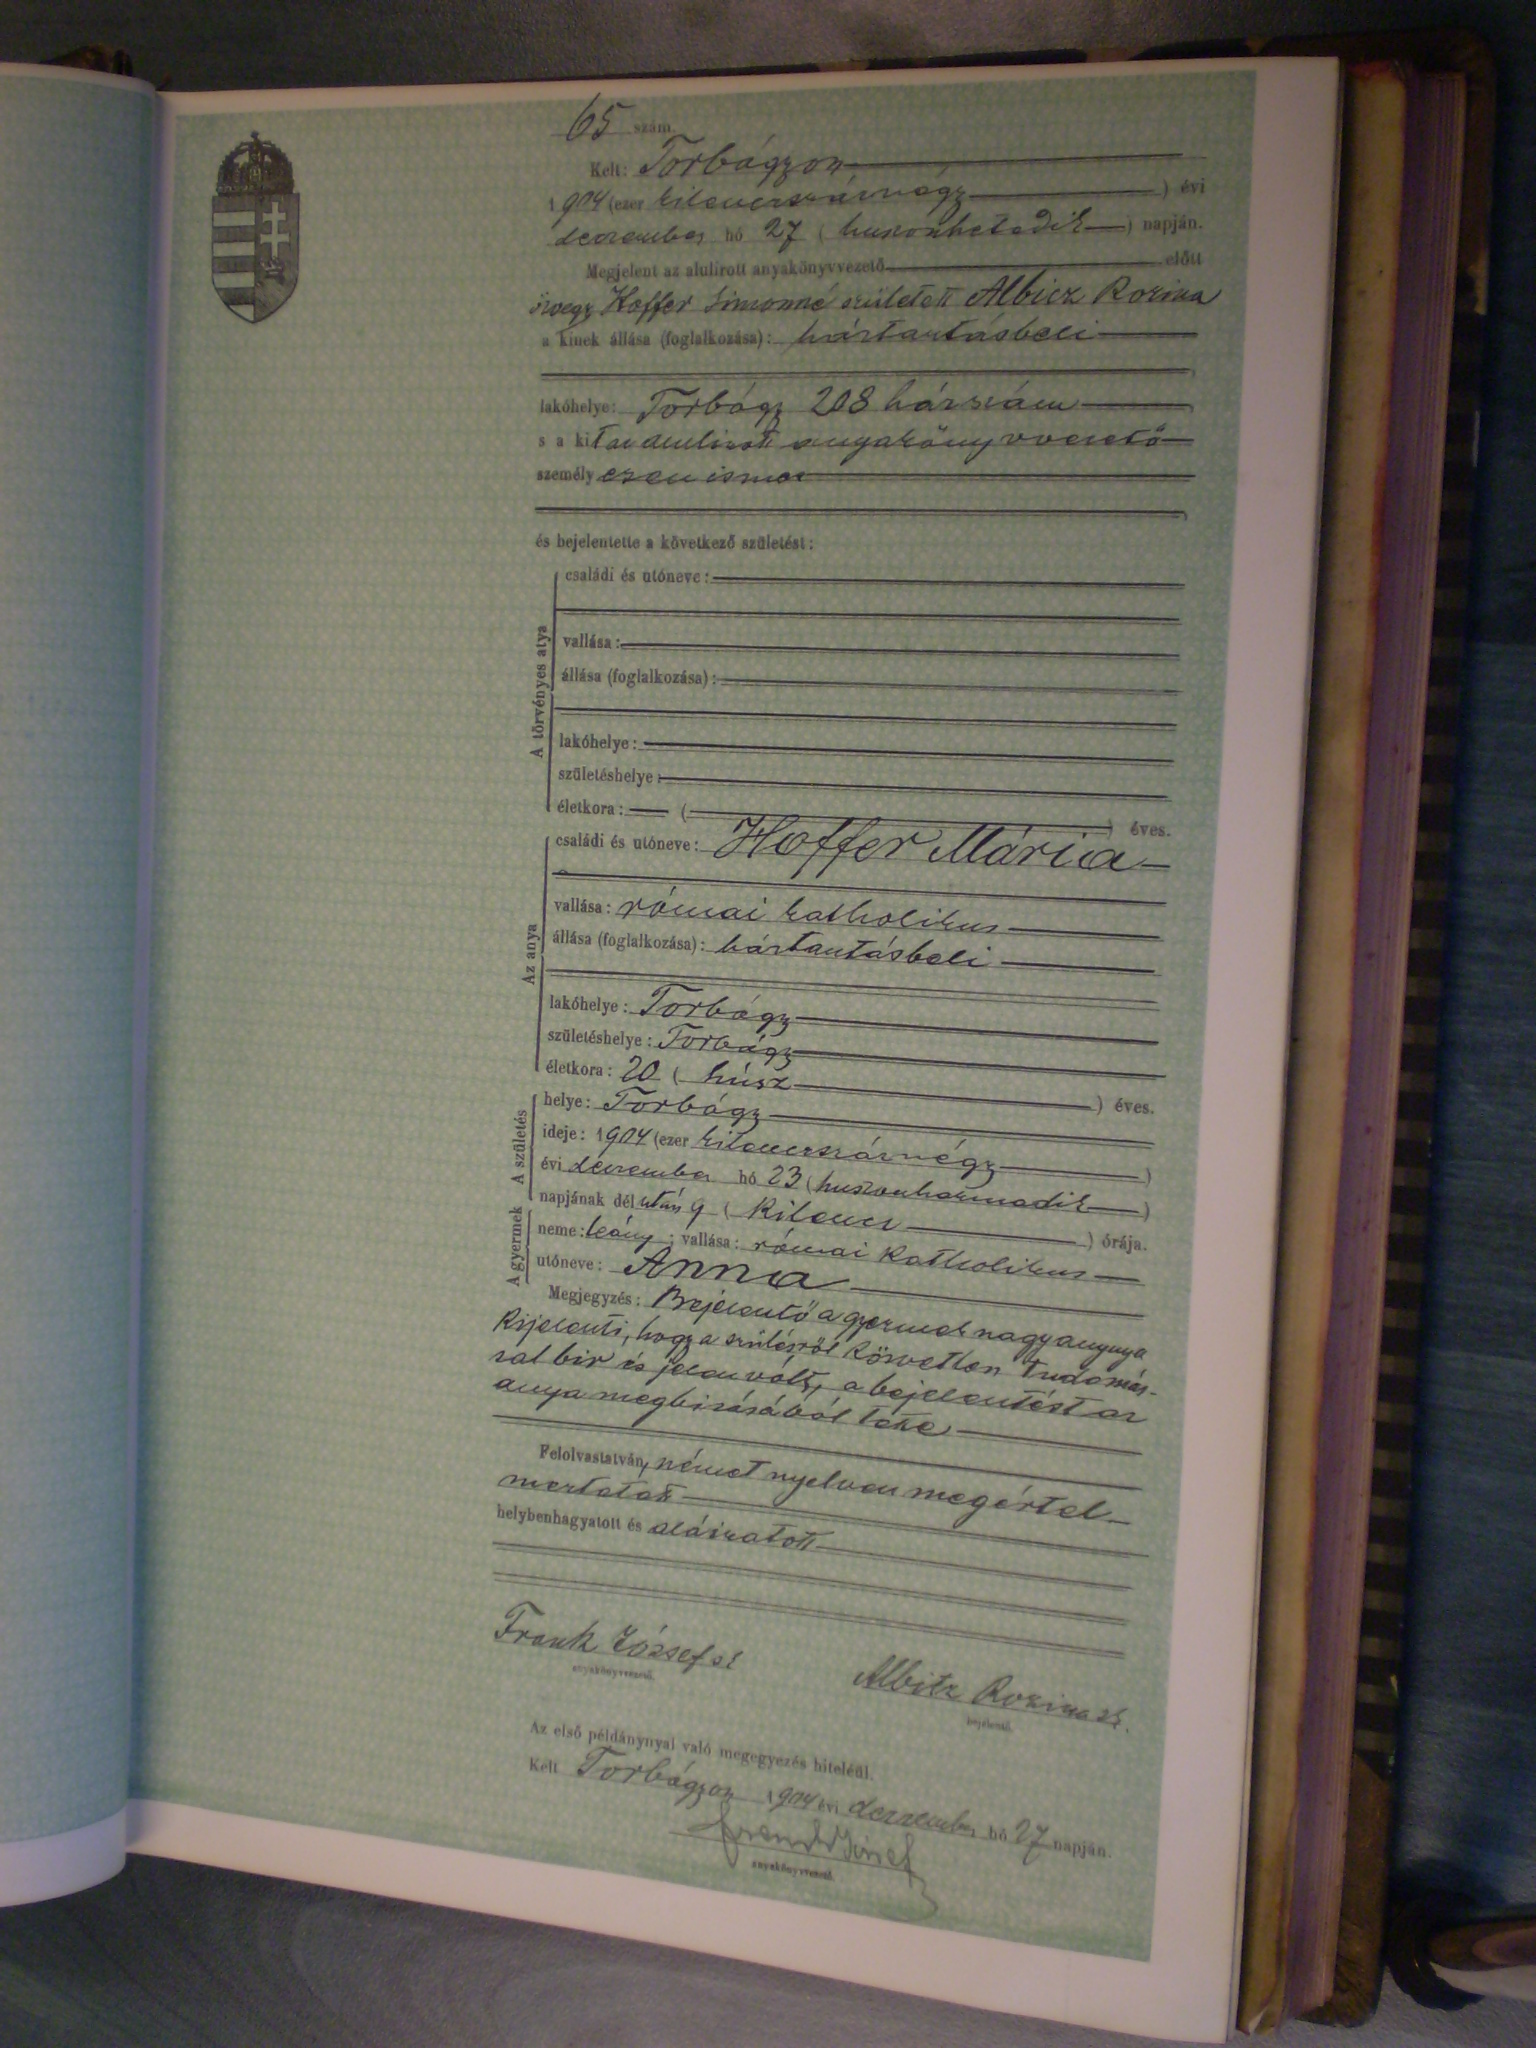 65 szám.
Kelt: Torbágyon
1904 (ezer kilenczszáznégy) évi
deczember hó 27 (huszonhetedik) napján.
Megjelent az alulírott anyakönyvvezető előtt
özvegy Hoffer Simonné született Albicz Rozina
a kinek állása (foglalkozása): háztartásbeli
lakóhelye: Torbágy 208 házszám
s a kit az alulirott anyakönyvvezető
személyesen ismer
és bejelentette a következő születést:
A törvényes atya
családi és utóneve:
vallása:
állása (foglalkozása):
lakóhelye:
születéshelye:
életkora: ( ) éves.
Az anya
családi és utóneve: Hoffer Mária
vallása: római katholikus
állása (foglalkozása): háztartásbeli
lakóhelye: Torbágy
születéshelye: Torbágy
életkora: 20 (húsz) éves.
A születés
helye: Torbágy
ideje: 1904 (ezer kilenczszáznégy)
évi deczember hó 23 (huszonharmadik)
napjának dél után 9 (kilencz) órája.
A gyermek
neme: leány; vallása: római katholikus
utóneve: Anna
Megjegyzés: Bejelentő a gyermek nagyanyja
kijelenti, hogy a szülésről közvetlen tudomás-
sal bir és jelen vólt, a bejelentést az
anya megbizásából teszi
Felolvastatván, német nyelven megértel-
meztetett
helybenhagyatott és aláiratott
Frank József sk
anyakönyvvezető.
Albitz Rozina sk.
bejelentő.
Az első példánynyal való megegyezés hiteléül.
Kelt Torbágyon 1904 évi deczember hó 27 napján.
Frank József
anyakönyvvezető.